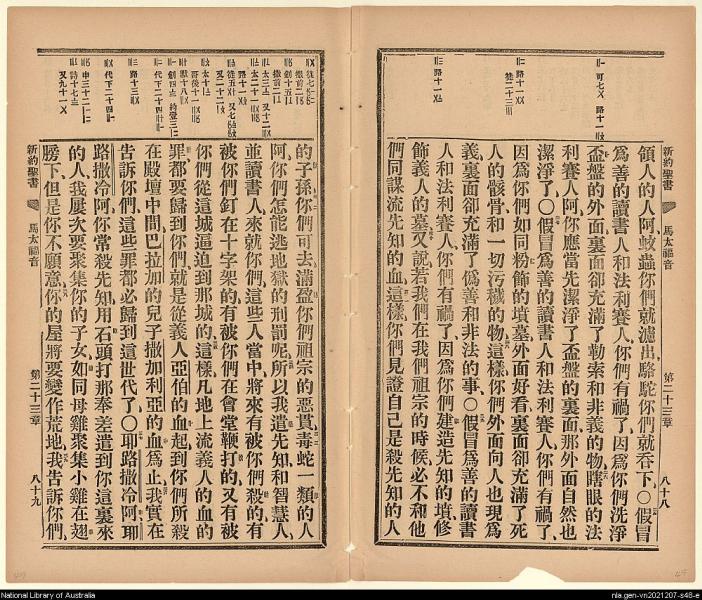 新約聖書
馬太福音
第二十三章
八十八
領人的人阿蚊蟲你們就濾出駱駝你們就吞下○假冒
爲善的讀書人和法利賽人你們有禍了因爲你們洗淨
盃盤的外面裏面卻充滿了勒索和非義的物瞎眼的法
利賽人阿你應當先潔淨了盃盤的裏面那外面自然也
潔淨了○假冒爲善的讀書人和法利賽人你們有禍了
因爲你們如同粉飾的墳墓外面好看裏面卻充滿了死
人的骸骨和一切污穢的物這樣你們外面向人也現爲
義裏面卻充滿了僞善和非法的事○假冒爲善的讀書
人和法利賽人你們有禍了因爲你們建造先知的墳修
飾義人的墓又說若我們在我們祖宗的時候必不和他
們同謀流先知的血這樣你們見證自己是殺先知的人
的子孫你們可去滿盈你們祖宗的惡貫毒蛇一類的人
阿你們怎能逃地獄的刑罰呢所以我遣先知和智慧人
並讀書人來就你們這些人當中將來有被你們殺的有
被你們釘在十字架的有被你們在會堂鞭打的又有被
你們從這城逼迫到那城的這樣凡地上流義人的血的
罪都要歸到你們就是從義人亞伯的血起到你們所殺
在殿壇中間巴拉加的兒子撒加利亞的血爲止我實在
告訴你們這些罪都必歸到這世代了○耶路撒冷阿耶
路撒冷阿你常殺先知用石頭打那奉差遣到你這裏來
的人我屢次要聚集你的子女如同母雞聚集小雞在翅
膀下但是你不願意你的屋將要變作荒地我告訴你們
新約聖書
馬太福音
第二十三章
八十九
National Library of Australia
nla.gen-vn2021207-s46-e